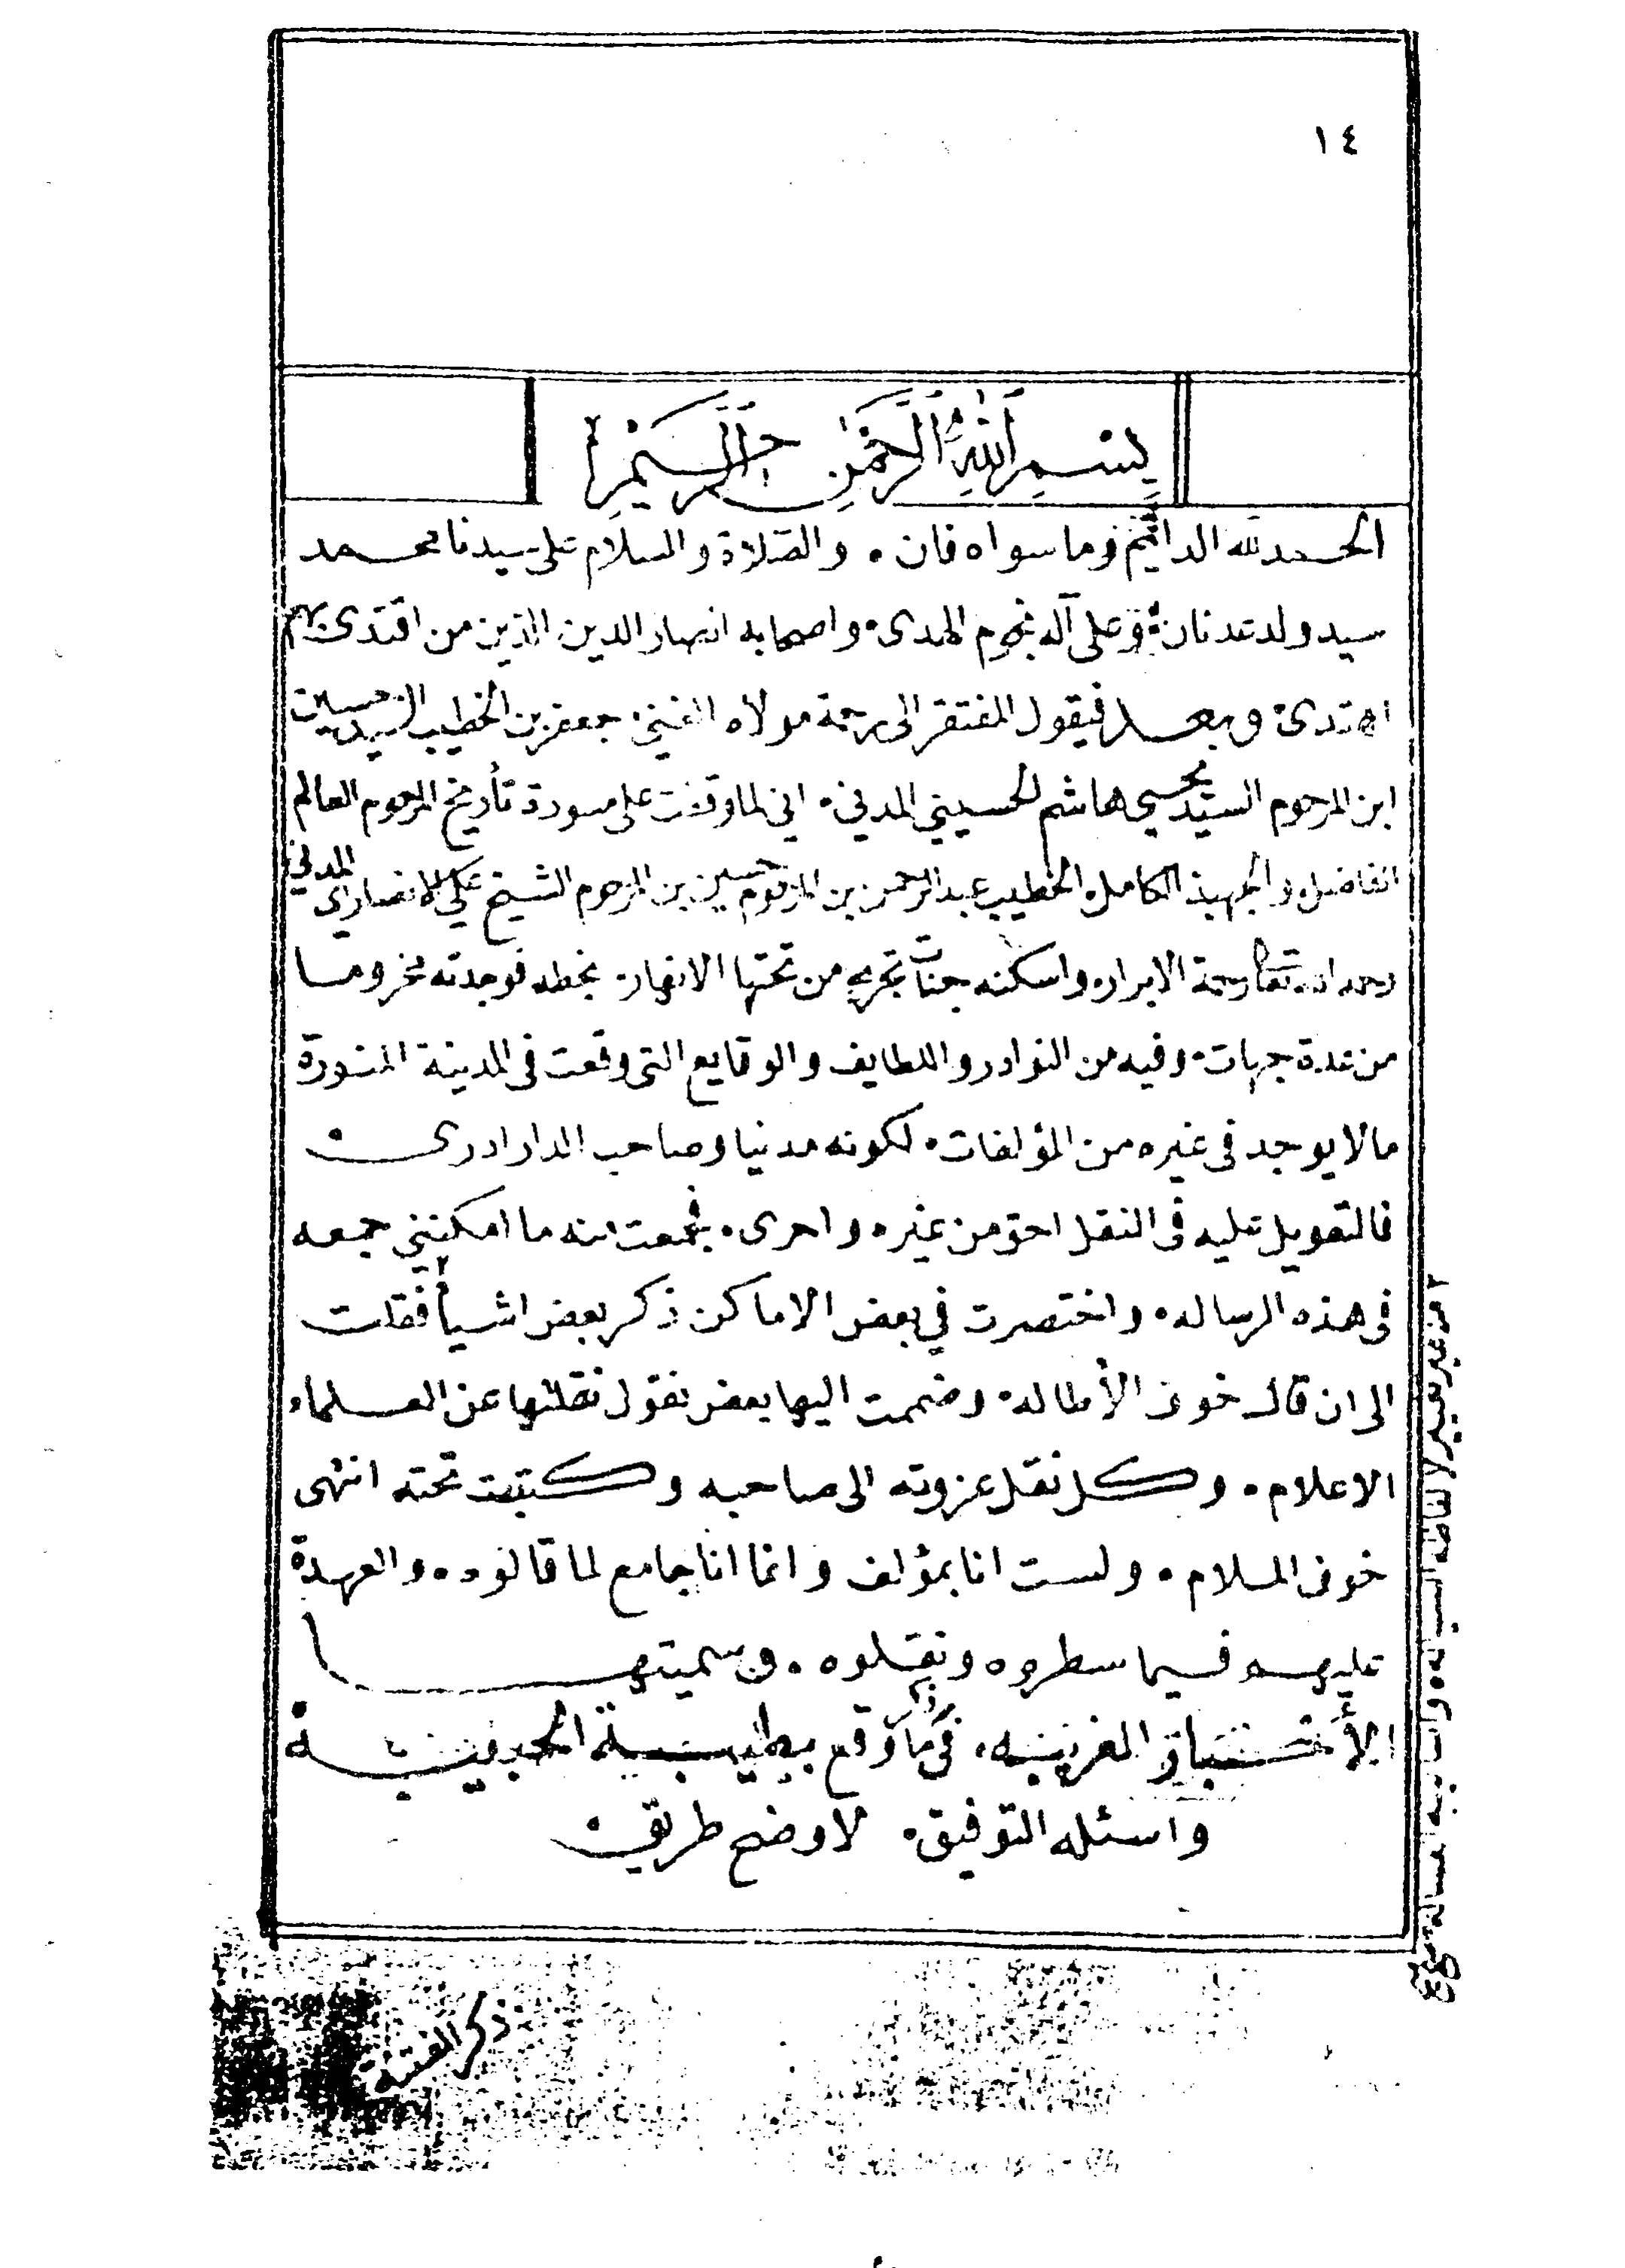 ١٤
بسم الله الرحمن الرحيم
الحمد لله الدائم وما سواه فان ٠ والصلاة والسلام على سيدنا محمد
سيد ولد عدنان ٠ وعلى آله نجوم الهدى ٠ واصحابه انصار الدين الذين من اقتدى بهم
اهتدى ٠ وبعد فيقول المفتقر الى رحمة مولاه الغني ٠ جعفر بن الخطيب السيد حسين
ابن المرحوم السيد يحيى هاشم الحسيني المدني ٠ اني لما وقفت على مسودة تأريخ المرحوم العالم
الفاضل والجهبذ الكامل الخطيب عبدالرحمن بن المرحوم حسين بن المرحوم الشيخ علي الانصاري المدني
رحمه الله تعالى رحمة الابرار ٠ واسكنه جنات تجري من تحتها الانهار ٠ بخطه فوجدته مخروما
من عدة جهات ٠ وفيه من النوادر واللطايف والوقايع التى وقعت فى المدينة المنورة
مالا يوجد فى غيره من المؤلفات ٠ لكونه مدنيا وصاحب الدار ادرى ٠
فالتعويل عليه فى النقل احق من غيره واحرى ٠ فجمعت منه ما امكننى جمعه
فى هذه الرساله ٠ واختصرت في بعض الاماكن ذكر بعض اشيأ فقلت
الى ان قال خوف الأطاله ٠ وضممت اليها بعض نقول نقلتها عن العلماء
الاعلام ٠ وكل نقل عزوته الى صاحبه وكتبت تحته انتهى
خوف الملام ٠ ولست انا بمؤلف وانما انا جامع لما قالوه ٠ والعهدة
عليهم فيما سطروه ونقلوه ٠ وسميتها
الأخبار الغريبه ٠ في ذكر ما وقع بطيبة الحبيبة
واسئله التوفيق ٠ لاوضح طريق ٠
٢ من غير تغيير لالفاظه
ذكر الفتنة